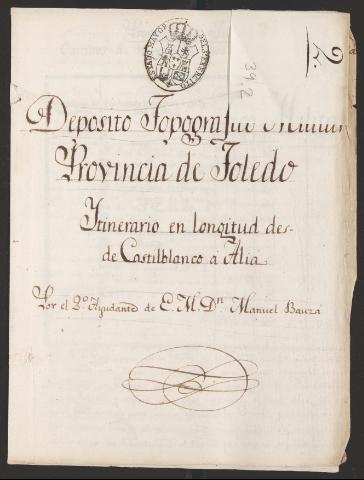 2.
39,2
Deposito Topografic
Provincia de Toledo
Itinerario en longitud des-
de Castilblanco a Alia
Por el 2º Ayudante de E. M. Dn Manuel Bauzá